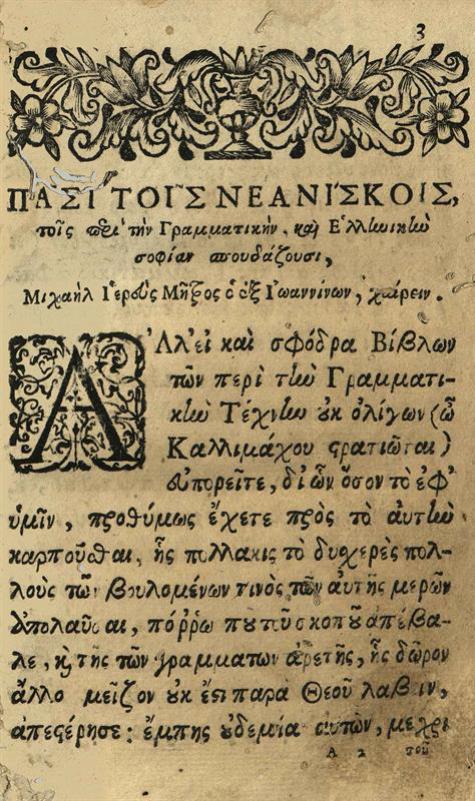 3
ΠΑΣΙ ΤΟΙ͂Σ ΝΕΑΝΊΣΚΟΙΣ,
τοῖς περὶ τὴν Γραμματικὴν, καὶ Ἑλλωικὼ
σοφίαν σπουδάζουσι,
Μιχαὴλ Ἱερεὺς Μῆτρος ὁ ἐξ Ἰωαννίνων, χαίρειν.
Ἀλλ' εἰ καὶ σφόδρα Βίβλων
τῶν περὶ τὴν Γραμματι-
κὴν Τέχνην οὐκ ὀλίγων (ὦ
Καλλιμάχου στρατιῶται)
εὐπορεῖτε, δι' ὧν ὅσον τὸ ἐφ'
ὑμῖν, προθύμως ἔχετε πρὸς τὸ αὐτὴν
καρποῦσθαι, ἧς πολλάκις τὸ δυσχερὲς πολ-
λοὺς τῶν βουλομένων τινὸς τῶν αὐτῆς μερῶν
ἀπολαῦσαι, πόῤῥω που τοῦ σκοποῦ ἀπέβα-
λε, καὶ τῆς τῶν γραμμάτων ἀρετῆς, ἧς δῶρον
ἄλλο μεῖζον οὐκ ἔστι παρὰ Θεοῦ λαβεῖν,
ἀπεστέρησε: ἔμπης οὐδεμία αὐτῶν, μέχρι
A 2 τοῦ